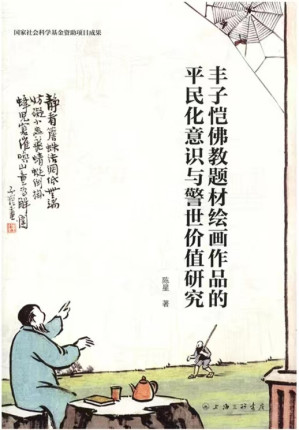 国家社会科学基金资助项目成果
丰子恺佛教题材绘画作品的
平民化意识与警世价值研究
陈星 著
静看簷蛛结网低無端
妨碍小虫飛蜻蜓倒掛
蜂児窘催喚山童為解圍
上海三联书店